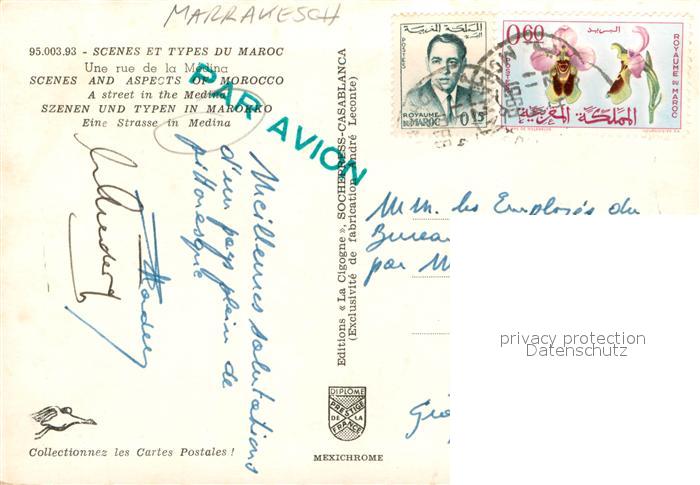 MARRAKESCH
95.003.93 - SCENES ET TYPES DU MAROC
Une rue de la Médina
SCENES AND ASPECTS OF MOROCCO
A street in the Medina
SZENEN UND TYPEN IN MAROKKO
Eine Strasse in Medina
PAR AVION
Meilleures salutations
d'un pays plein de
pittoresque
Editions « La Cigogne », SOCHEPRESS-CASABLANCA
(Exclusivité de fabrication André Leconte)
المملكة المغربية
POSTES
ROYAUME
DU MAROC
0,15
0,60
البريد
POSTES
ROYAUME DU MAROC
المملكة المغربية
MM. les Employés du
Bureau
par M
DIPLÔME
PRESTIGE
DE LA
FRANCE
MEXICHROME
Collectionnez les Cartes Postales !
privacy protection
Datenschutz